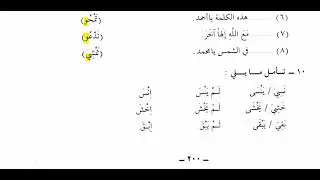 (٦) ............ هذه الكلمة يا أحمد. (تَمْحُو)
(٧) ............ مَعَ اللَّهِ إِلٰهاً آخَرَ. (تَدْعُو)
(٨) ............ في الشمس يا محمد. (تَمْشِي)
١٠ – تأمل ما يلي:
نَسِيَ / يَنْسَى لَمْ يَنْسَ اِنْسَ
خَشِيَ / يَخْشَى لَمْ يَخْشَ اِخْشَ
بَقِيَ / يَبْقَى لَمْ يَبْقَ اِبْقَ
– ٢٠٠ –